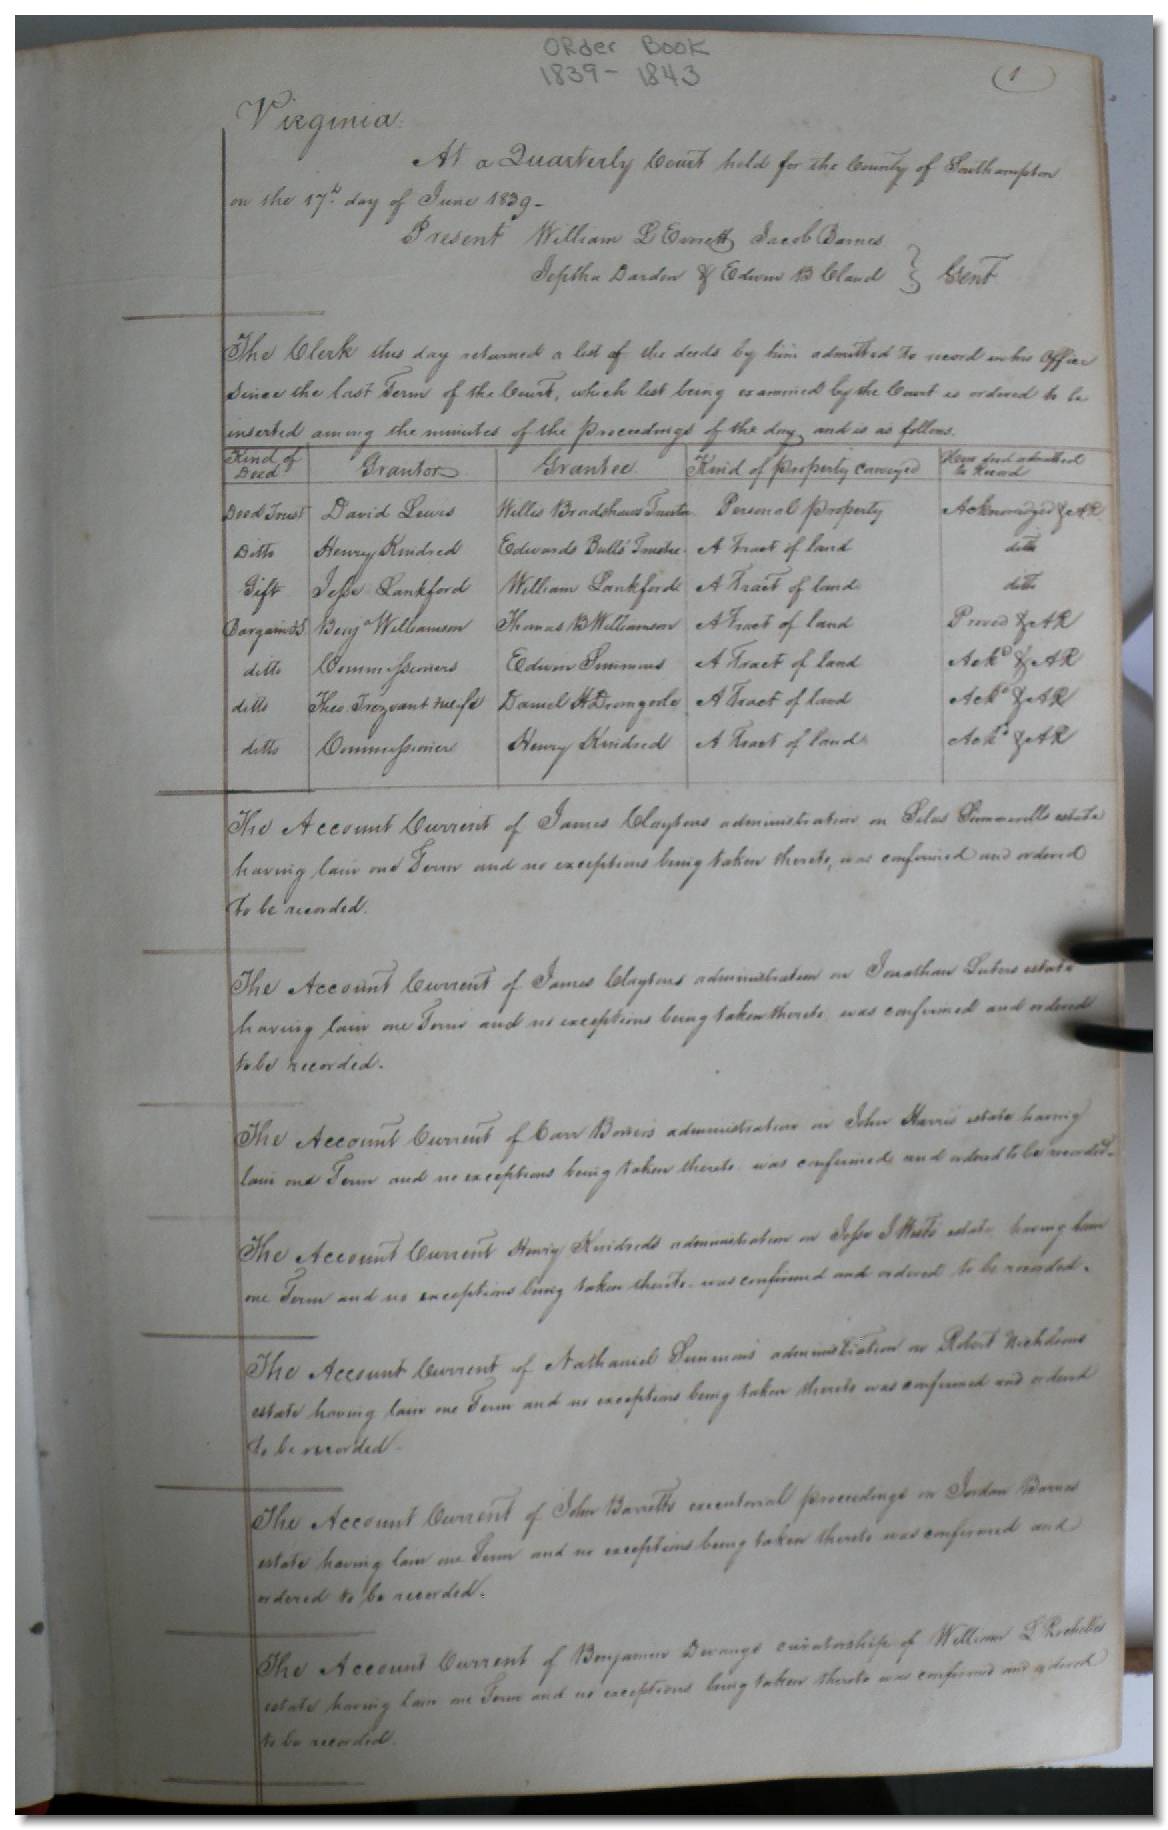 Order Book
1839 - 1843
1
Virginia.
At a Quarterly Court held for the County of Southampton
on the 17th day of June 1839 -
Present William L Everett Jacob Barnes
Jeptha Darden & Edwin B Claud } Gent
The Clerk this day returned a list of the deeds by him admitted to record in his Office
since the last Term of the Court, which list being examined by the Court is ordered to be
inserted among the minutes of the proceedings of the day and is as follows.
Kind of Deed Grantor Grantee Kind of property conveyed How deed admitted to Record
Deed Trust David Lewis Willis Bradshaws Trustee Personal property Acknowledged & AR
Ditto Henry Kindred Edwards Butts' Trustee A Tract of land ditto
Gift Jesse Lankford William Lankford A Tract of land ditto
Bargain & S. Benja Williamson Thomas B Williamson A Tract of land Proved & AR
ditto Commissioners Edwin Simmons A Tract of land Ackd & AR
ditto Theo. Trezvant & wife Daniel H Dromgoole A Tract of land Ackd & AR
ditto Commissioner Henry Kindred A Tract of land Ackd & AR
The Account Current of James Claytons administration on Silas Summerells estate
having lain one Term and no exceptions being taken thereto, was confirmed and ordered
to be recorded.
The Account Current of James Claytons administration on Jonathan Luters estate
having lain one Term and no exceptions being taken thereto, was confirmed and ordered
to be recorded.
The Account Current of Carr Bowers administration on John Harris estate having
lain one Term and no exceptions being taken thereto was confirmed and ordered to be recorded.
The Account Current Henry Kindreds administration on Jesse J estate having lain
one Term and no exceptions being taken thereto was confirmed and ordered to be recorded.
The Account Current of Nathaniel Simmons administration on Robert Nicholsons
estate having lain one Term and no exceptions being taken thereto was confirmed and ordered
to be recorded.
The Account Current of John Barretts executorial proceedings on Jordan Barnes
estate having lain one Term and no exceptions being taken thereto was confirmed and
ordered to be recorded.
The Account Current of Benjamin Devanys curatorship of William L Rochelles
estate having lain one Term and no exceptions being taken thereto was confirmed and ordered
to be recorded.